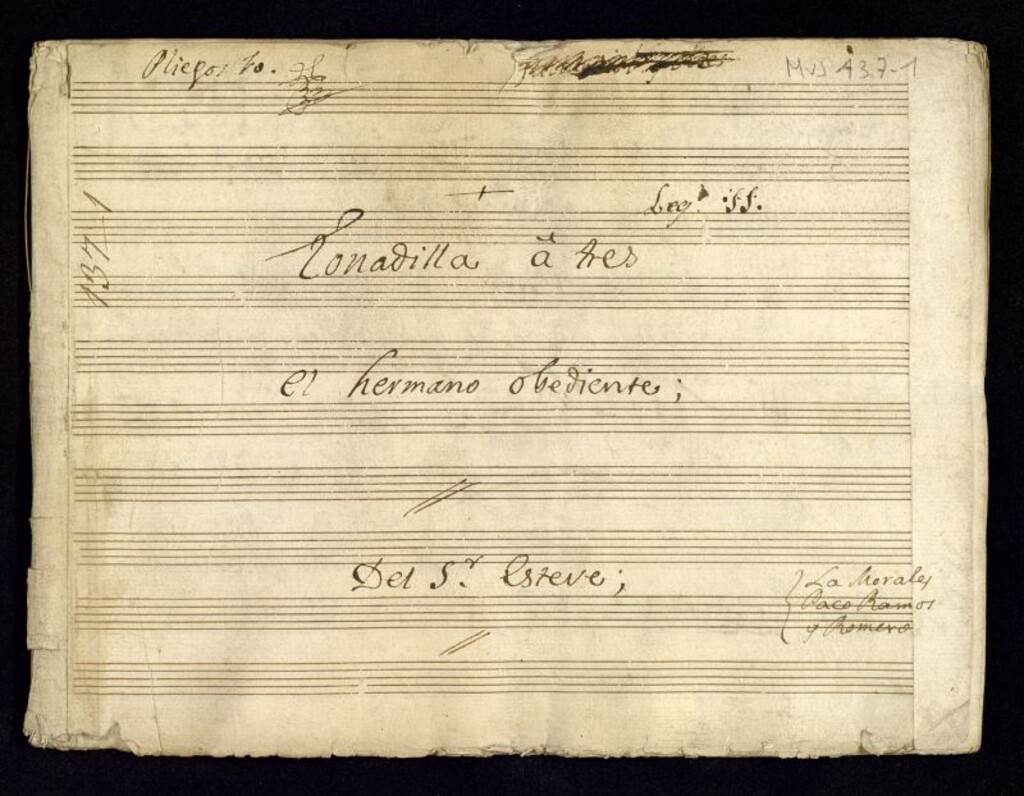 Pliegos 10.
Mus 137-1
Leg.º 11.
137-1
Tonadilla â tres
el hermano obediente;
Del S.r Esteve;
La Morales
Paco Ramos
y Romero